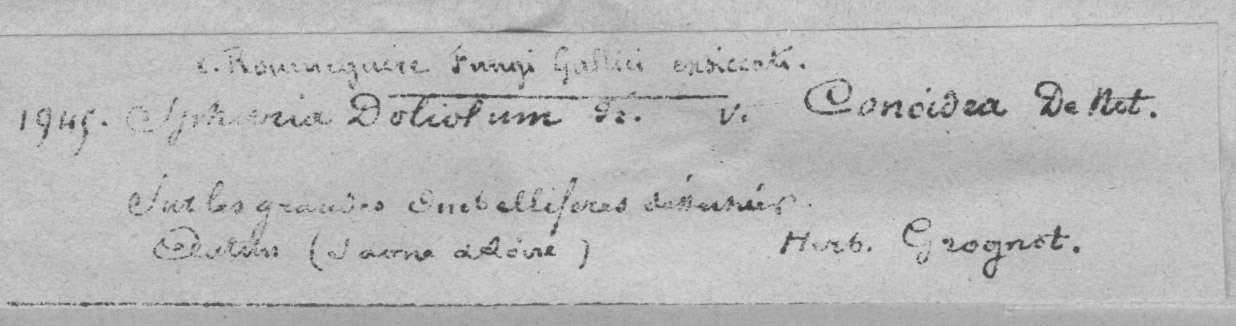 C. Roumeguère Fungi Gallici exsiccati.
1945. Sphaeria Doliolum Fr. v. Conoidea De Not.
Sur les grandes Ombellifères
Autun (Saone & Loire) Herb. Grognot.